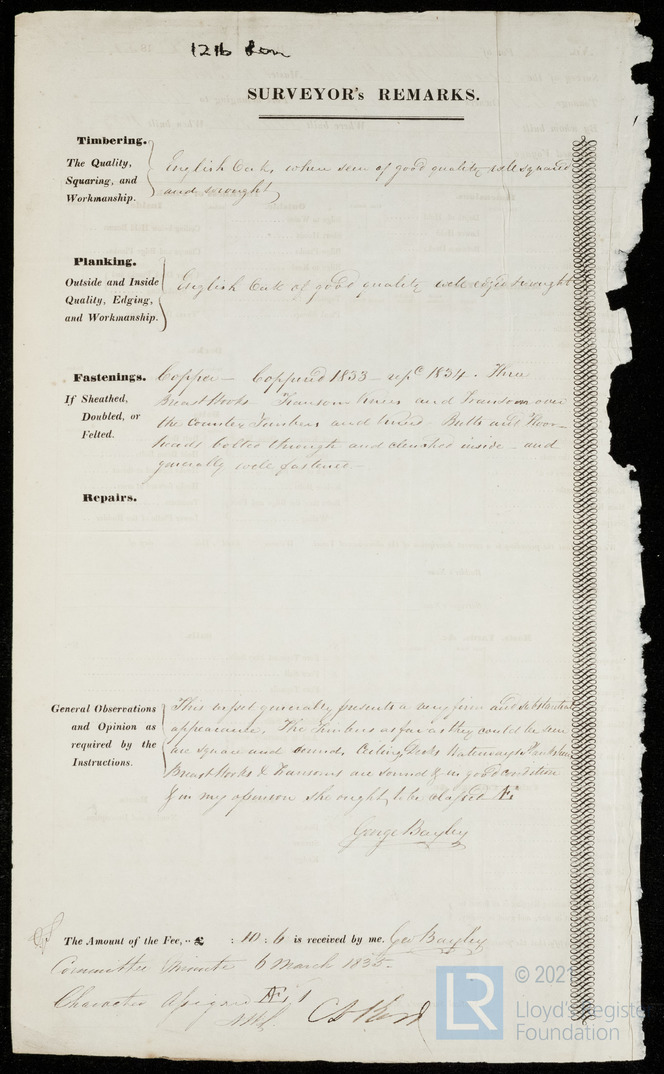 1216 Lon
SURVEYOR's REMARKS.
Timbering.
The Quality,
Squaring, and
Workmanship.
English Oak, when seen of good quality well squared
and wrought
Planking.
Outside and Inside
Quality, Edging,
and Workmanship.
English Oak of good quality well edged & wrought
Fastenings.
If Sheathed,
Doubled, or
Felted.
Copper — Coppered 1833 — 1834. Three
Breast Hooks Transom knees and Transom over
the Counter Timbers and knees — Butts and Floor
heads bolted through and clenched inside — and
generally well fastened —
Repairs.
General Observations
and Opinion as
required by the
Instructions.
This vessel generally presents a very firm and substantial
appearance. The Timbers as far as they could be seen
are square and sound, Ceiling Decks Waterways
Breast Hooks & Transoms are sound & in good condition
& in my opinion she ought to be classed Æ1
George Bayley
The Amount of the Fee, ·· £ : 10 : 6 is received by me, Geo Bayley
Committee Minute 6 March 1835
Character Assigned Æ 1
© 202
Lloyd's Register
Foundation
LR